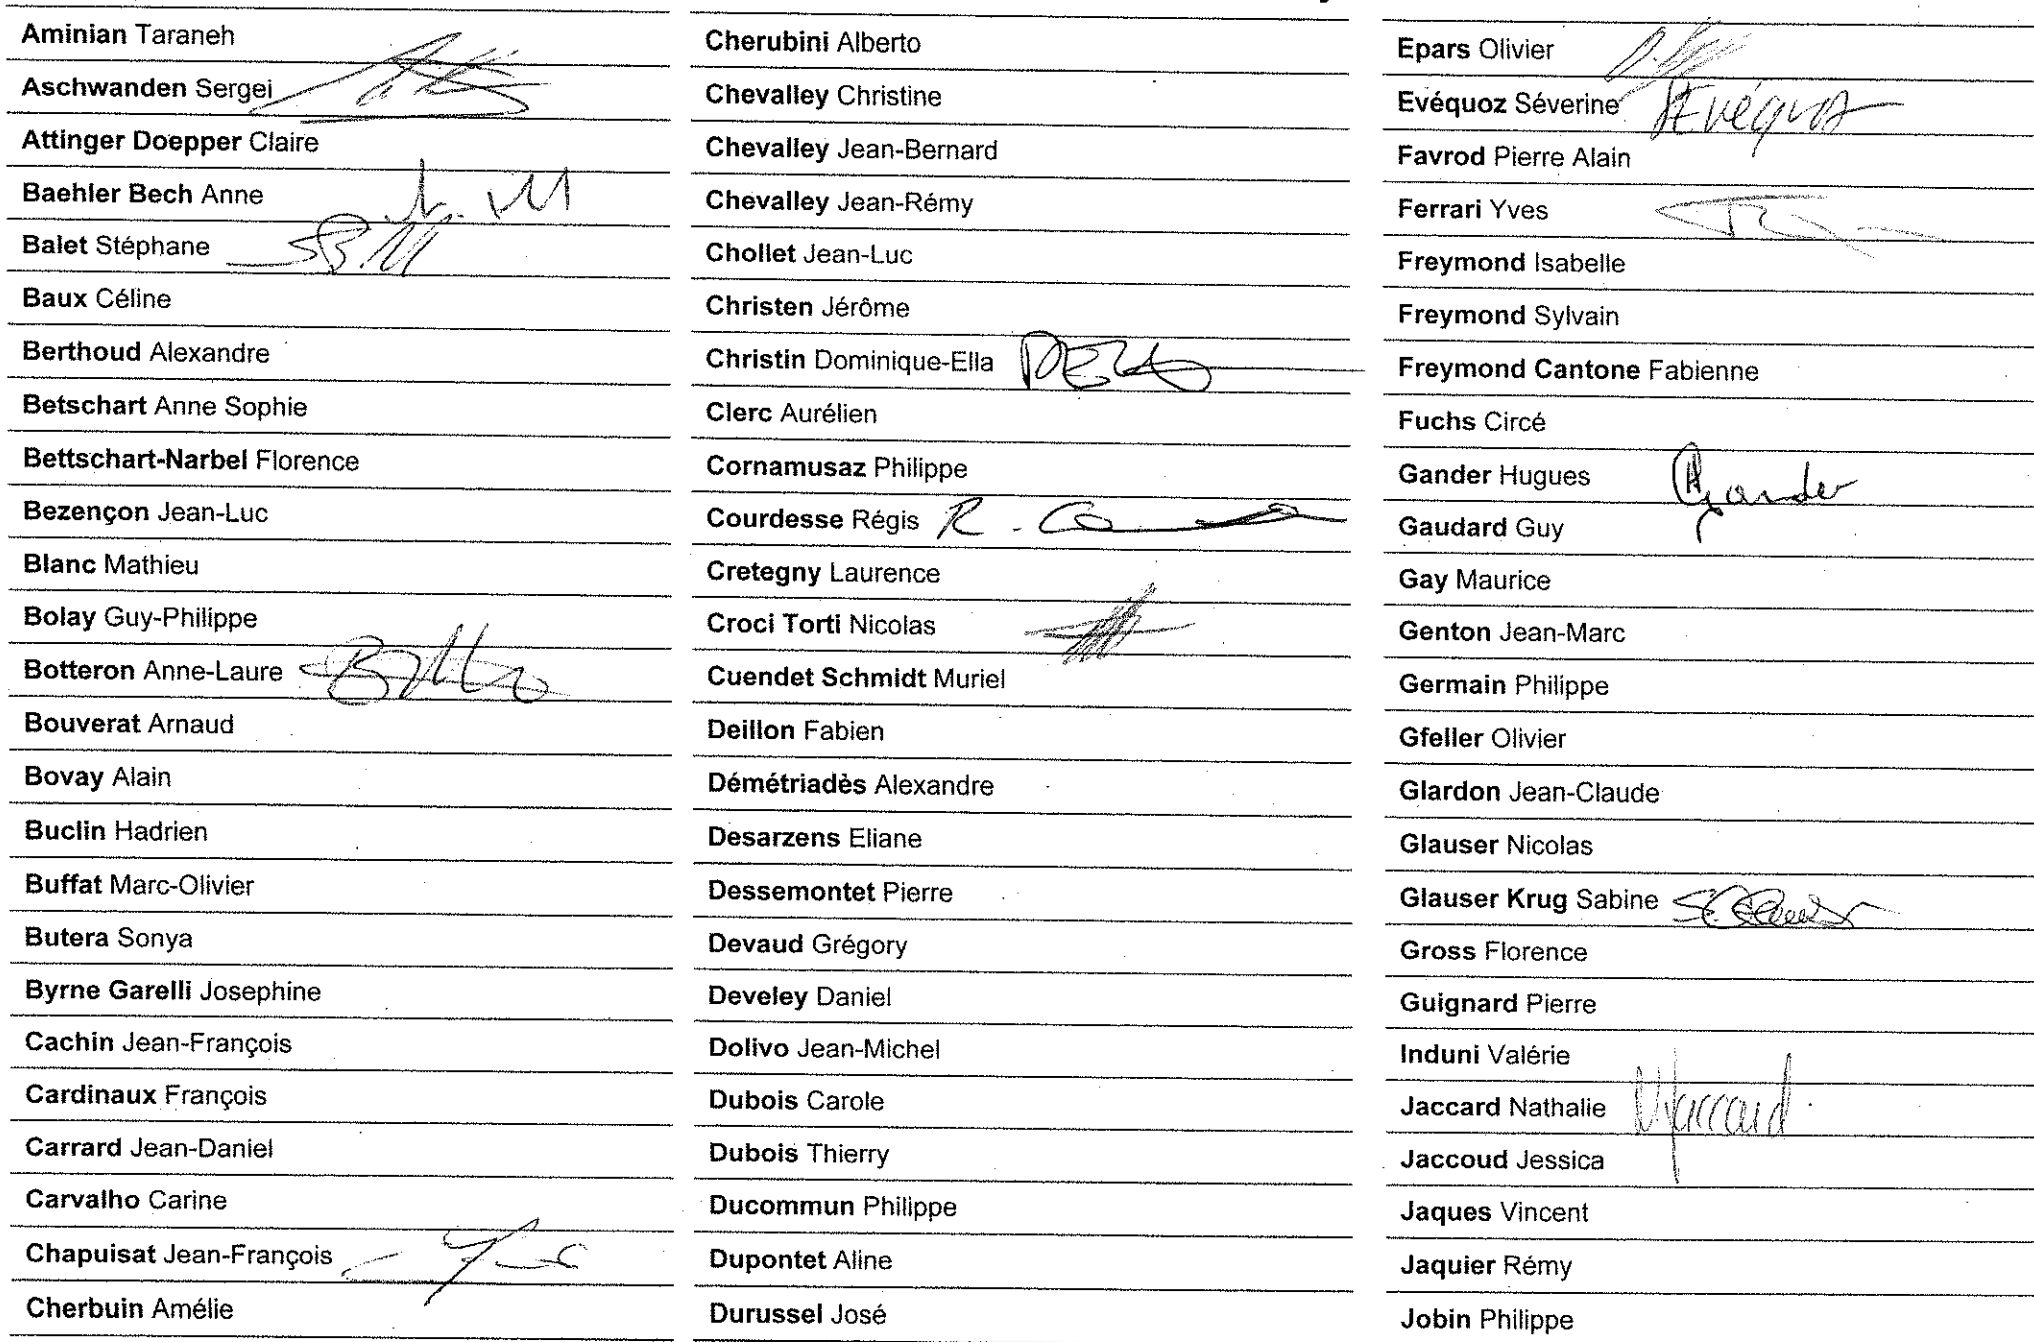 Aminian Taraneh
Aschwanden Sergei
Attinger Doepper Claire
Baehler Bech Anne
Balet Stéphane
Baux Céline
Berthoud Alexandre
Betschart Anne Sophie
Bettschart-Narbel Florence
Bezençon Jean-Luc
Blanc Mathieu
Bolay Guy-Philippe
Botteron Anne-Laure
Bouverat Arnaud
Bovay Alain
Buclin Hadrien
Buffat Marc-Olivier
Butera Sonya
Byrne Garelli Josephine
Cachin Jean-François
Cardinaux François
Carrard Jean-Daniel
Carvalho Carine
Chapuisat Jean-François
Cherbuin Amélie
Cherubini Alberto
Chevalley Christine
Chevalley Jean-Bernard
Chevalley Jean-Rémy
Chollet Jean-Luc
Christen Jérôme
Christin Dominique-Ella
Clerc Aurélien
Cornamusaz Philippe
Courdesse Régis R.
Cretegny Laurence
Croci Torti Nicolas
Cuendet Schmidt Muriel
Deillon Fabien
Démétriadès Alexandre
Desarzens Eliane
Dessemontet Pierre
Devaud Grégory
Develey Daniel
Dolivo Jean-Michel
Dubois Carole
Dubois Thierry
Ducommun Philippe
Dupontet Aline
Durussel José
Epars Olivier
Evéquoz Séverine SEvéquoz
Favrod Pierre Alain
Ferrari Yves
Freymond Isabelle
Freymond Sylvain
Freymond Cantone Fabienne
Fuchs Circé
Gander Hugues Gander
Gaudard Guy
Gay Maurice
Genton Jean-Marc
Germain Philippe
Gfeller Olivier
Glardon Jean-Claude
Glauser Nicolas
Glauser Krug Sabine
Gross Florence
Guignard Pierre
Induni Valérie
Jaccard Nathalie NJaccard
Jaccoud Jessica
Jaques Vincent
Jaquier Rémy
Jobin Philippe